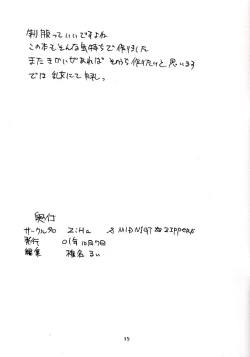 制服っていいですよね
この本もそんな気持ちで作りました
またきかいがあれば そのうち作りたいと思います
では 乱文にて 失礼っ
奥付
サークル名 ZiHa & MIDNIGHT ZIPPER
発行 01年10月7日
編集 椎名 るい
19